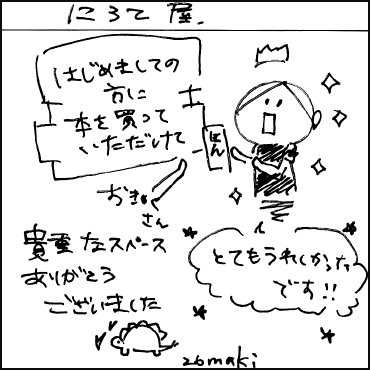 にろて屋.
はじめましての
方に
本を買って
いただけて
ほん
おきゃくさん
とてもうれしかった
です!!
貴重なスペース
ありがとう
ございました
26maki